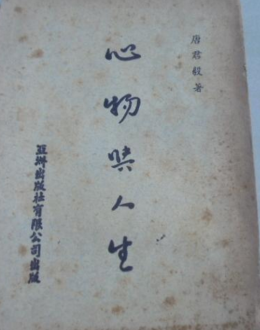 唐君毅著
心物與人生
亞洲出版社有限公司出版